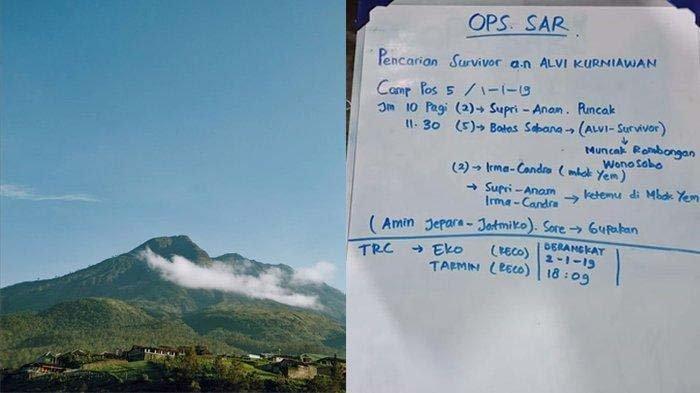 OPS. SAR.
Pencarian Survivor a.n ALVI KURNIAWAN
Camp Pos 5 / 1-1-19
Jm 10 Pagi (2) → Supri-Anam. Puncak
11.30 (5) → Batas Sabana → (ALVI-Survivor)
↓
Muncak Rombongan
Wonosobo
(2) → Irma-Candra (mbok Yem)
→ Supri-Anam
Irma-Candra → ketemu di Mbok Yem
(Amin Jepara-Jatmiko). Sore → Gupakan
TRC → EKO (RECO) BERANGKAT
TARMIN (RECO) 2-1-19
18:09